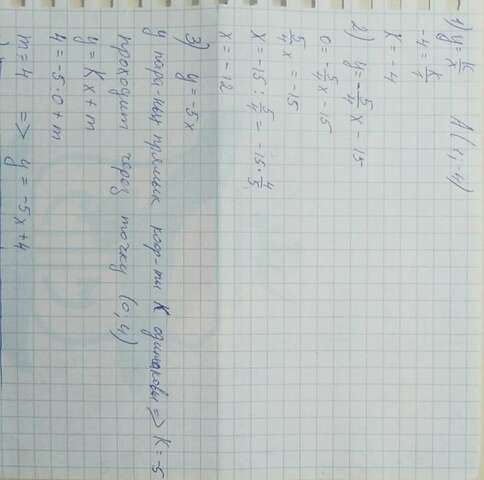 1) y = k/x   A(1; -4)
-4 = k/1
k = -4
2) y = -5/4 x - 15
0 = -5/4 x - 15
5/4 x = -15
x = -15 : 5/4 = -15 · 4/5
x = -12
3) y = -5x
У пара-ных прямых коэф-ты K одинаковы => K = -5
проходит через точку (0; 4)
y = Kx + m
4 = -5·0 + m
m = 4 => y = -5x + 4